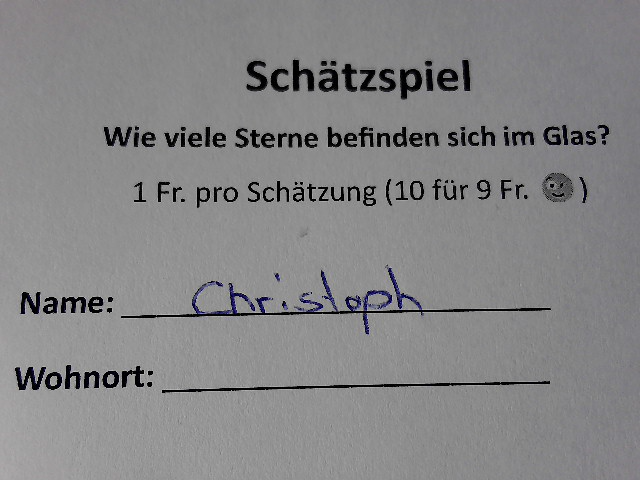 Schätzspiel
Wie viele Sterne befinden sich im Glas?
1 Fr. pro Schätzung (10 für 9 Fr. 😉)
Name: Christoph
Wohnort: